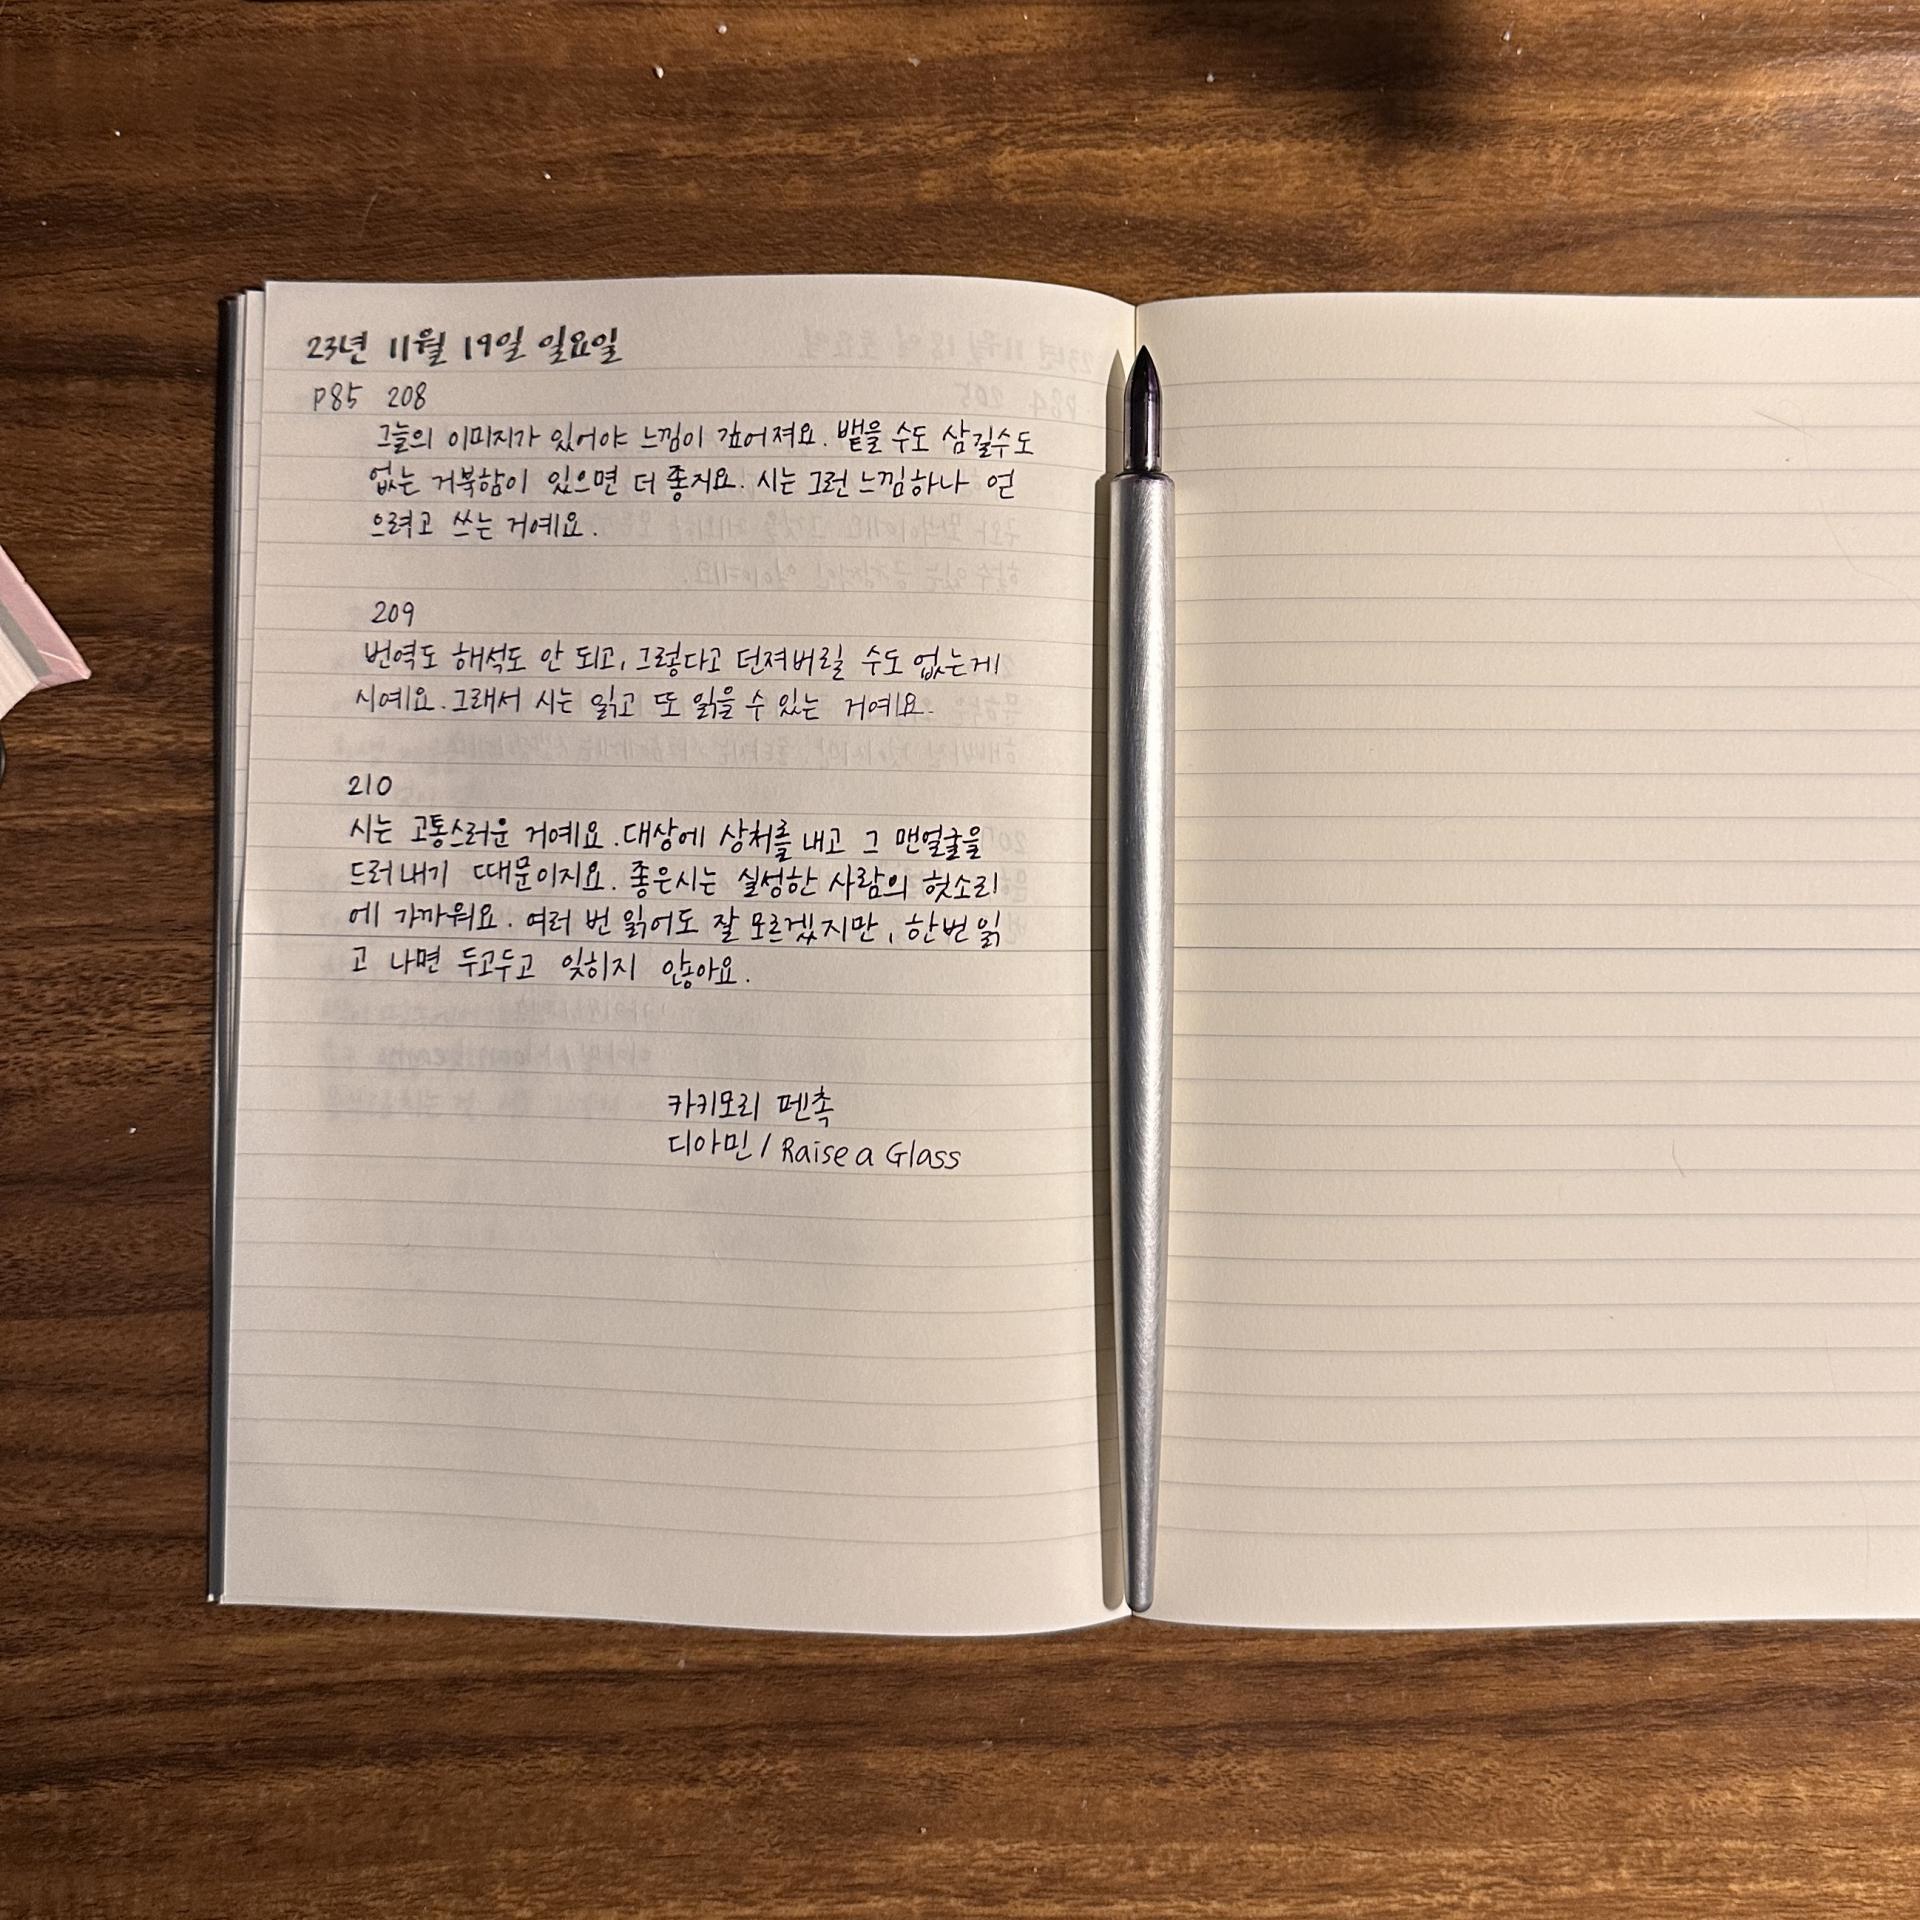 23년 11월 19일 일요일
P85 208
그늘의 이미지가 있어야 느낌이 깊어져요. 뱉을 수도 삼킬수도
없는 거북함이 있으면 더 좋지요. 시는 그런 느낌하나 얻
으려고 쓰는 거예요.
209
번역도 해석도 안 되고, 그렇다고 던져버릴 수도 없는게
시예요. 그래서 시는 읽고 또 읽을 수 있는 거예요.
210
시는 고통스러운 거예요. 대상에 상처를 내고 그 맨얼굴을
드러내기 때문이지요. 좋은시는 실성한 사람의 헛소리
에 가까워요. 여러 번 읽어도 잘 모르겠지만, 한번 읽
고 나면 두고두고 잊히지 않아요.
카키모리 펜촉
디아민 / Raise a Glass